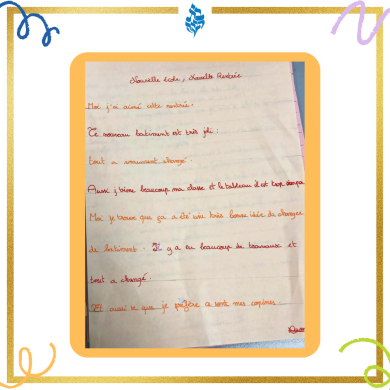 Nouvelle école, Nouvelle Rentrée
Moi j'ai aimé cette rentrée.
Ce nouveau batiment est très joli.
tout a vraiment changé.
Aussi j'aime beaucoup ma classe et le tableau il est trop sympa
Moi je trouve que ça a été une très bonne idée de changer
de batiment. Il y a eu beaucoup de travaux et
tout a changé.
Et aussi ce que je préfère ce sont mes copines.